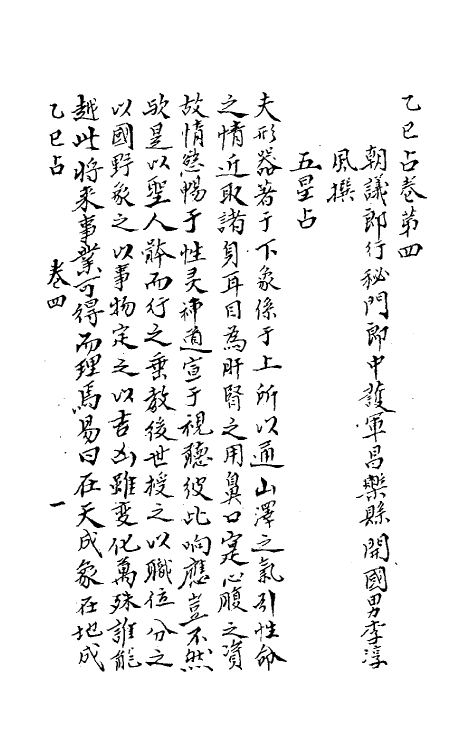 乙巳占卷第四
朝議郎行秘門郎中護軍昌樂縣開國男李淳
風撰
五星占
夫形器著于下象係于上所以通山澤之氣引性命
之情近取諸身耳目為肝腎之用鼻口寔心腹之資
故情慾暢于性灵神道宣于視聽彼此响應豈不然
欤是以聖人體而行之垂教後世授之以職位分之
以國野象之以事物定之以吉凶雖變化萬殊誰能
越此将来事業可得而理焉易曰在天成象在地成
乙巳占 卷四 一